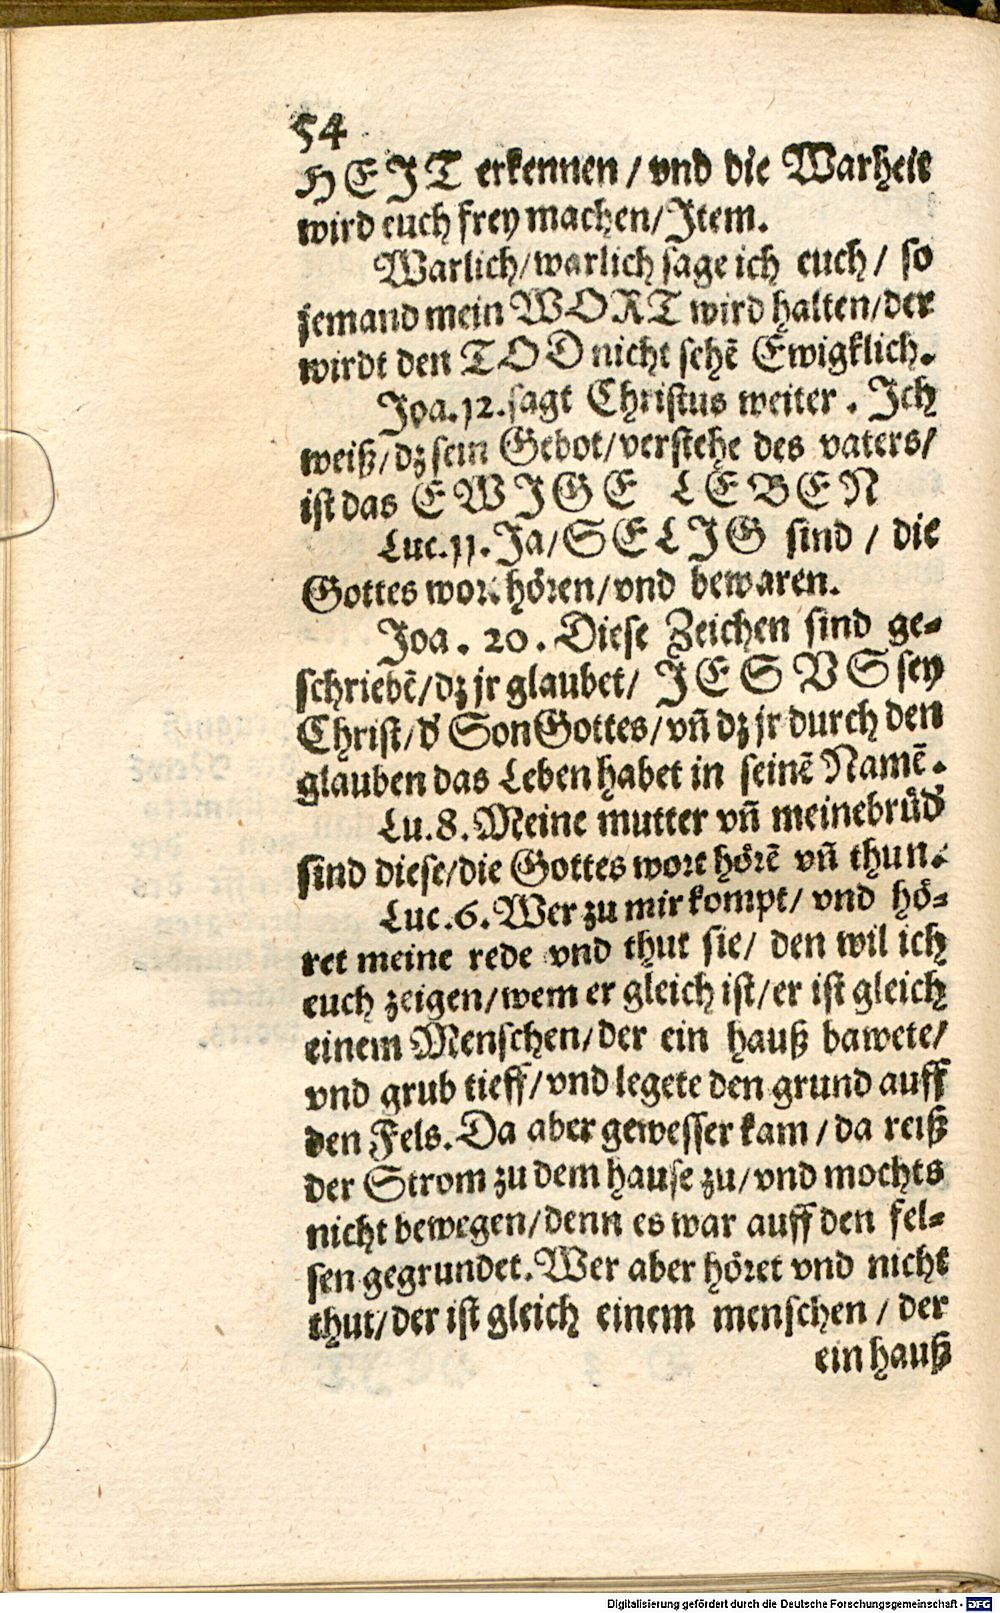 54
HEIT erkennen / vnd die Warheit
wird euch frey machen/Item.
Warlich/warlich sage ich euch / so
jemand mein WORT wird halten/der
wirdt den TOD nicht sehẽ Ewigklich.
Joa.12.sagt Christus weiter . Ich
weiß/dz sein Gebot/verstehe des vaters/
ist das EWIGE LEBEN
Luc.11.Ja/SELIG sind / die
Gottes wort hören/vnd bewaren.
Joa . 20 . Diese Zeichen sind ge-
schriebẽ/dz jr glaubet/ JESVS sey
Christ/d' Son Gottes/vñ dz jr durch den
glauben das Leben habet in seinẽ Namẽ.
Lu.8.Meine mutter vñ meinebrüd'
sind diese/die Gottes wort hörẽ vñ thun.
Luc.6.Wer zu mir kompt/ vnd hö-
ret meine rede vnd thut sie/ den wil ich
euch zeigen/wem er gleich ist/er ist gleich
einem Menschen/der ein hauß bawete/
vnd grub tieff/vnd legete den grund auff
den Fels.Da aber gewesser kam / da reiß
der Strom zu dem hause zu/vnd mochts
nicht bewegen/denn es war auff den fel-
sen gegrundet.Wer aber höret vnd nicht
thut/der ist gleich einem menschen / der
ein hauß
Digitalisierung gefördert durch die Deutsche Forschungsgemeinschaft - DFG